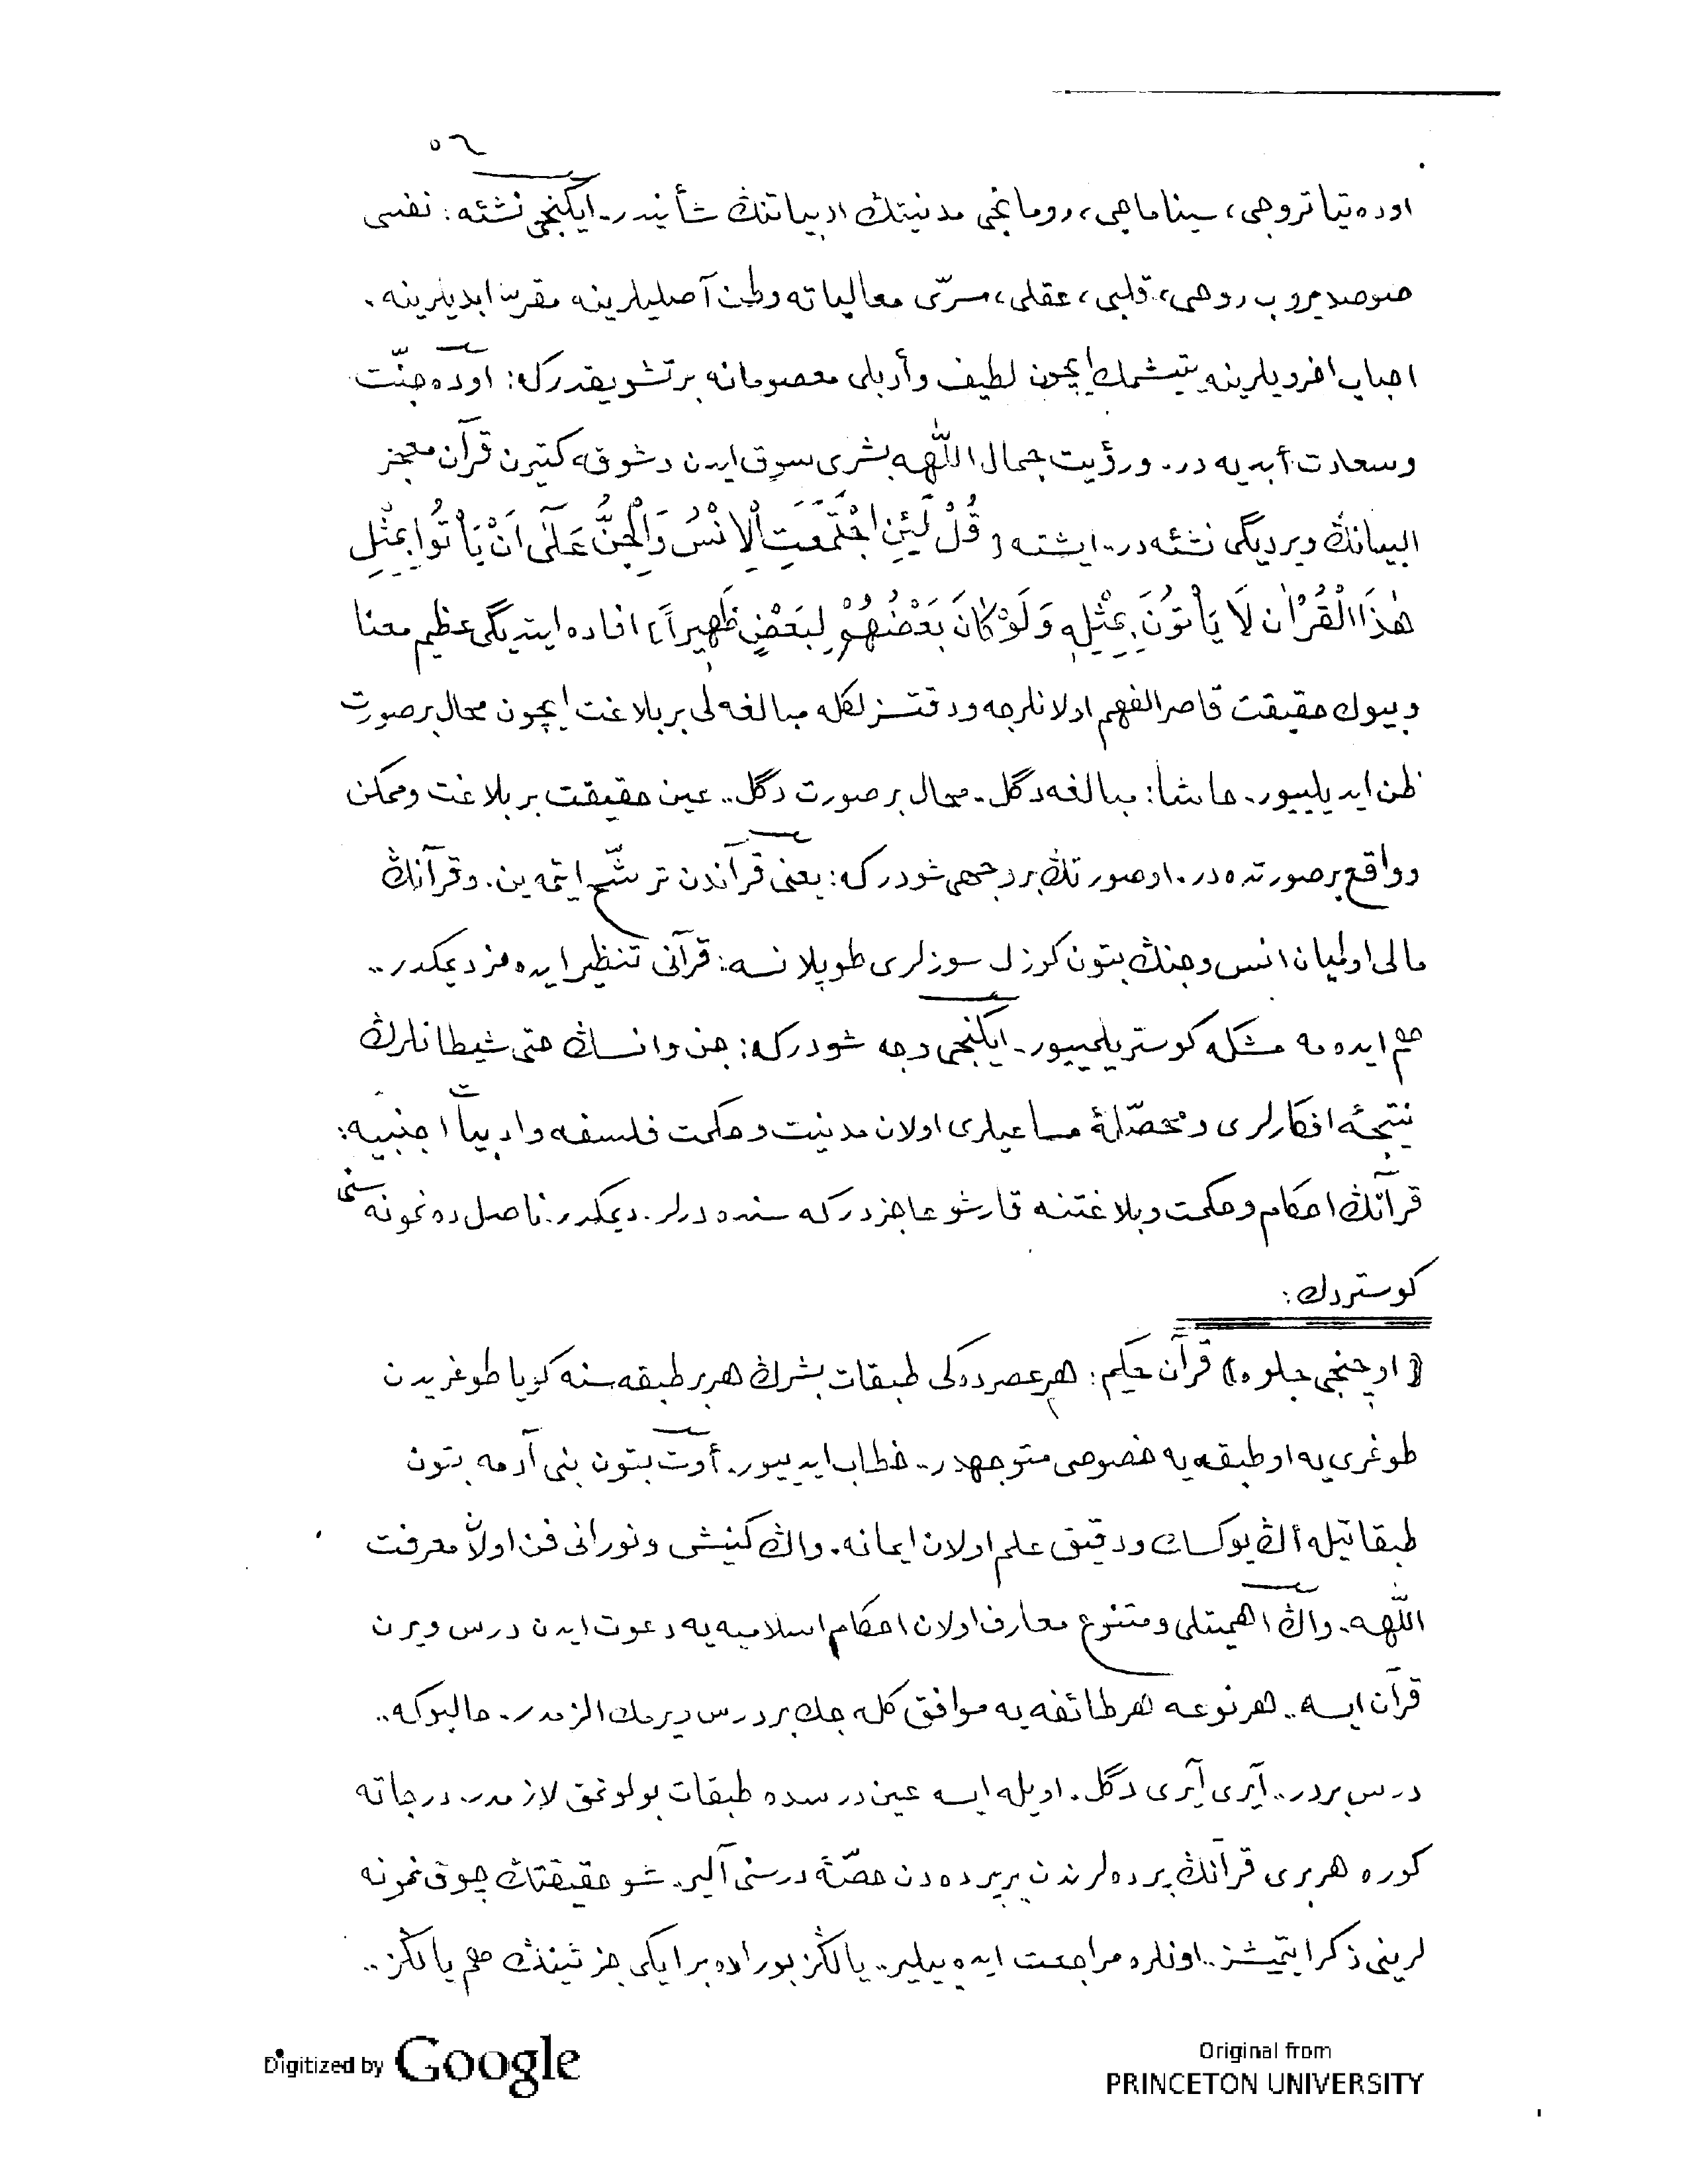 ٥٦
اوده تیاتروجی، سیناماجی، رومانجی مدنیتڭ ادبیاتنڭ شأنیدر. ایكنجی نشئه: نفسی
صوصدیروب روحی، قلبی، عقلی، سرّی معالیاته وطن آصلیلرینه مقرّ ابدیلرینه.
احباب اخرویلرینه یتیشمك ایچون لطیف وأدبلی معصومانه بر تشویقدركه: اوده جنّت
وسعادت أبدیه در. ورؤیت جمال اللّٰهه بشری سوق ایدن وشوقه كتیرن قرآن معجز
البیانڭ ویردیگی نشئه در. ایشته ﴿ قُلْ لَئِنِ اجْتَمَعَتِ الْاِنْسُ وَالْجِنُّ عَلَٓى اَنْ يَأْتُوا بِمِثْلِ
هٰذَا الْقُرْاٰنِ لَا يَأْتُونَ بِمِثْلِهِ وَلَوْ كَانَ بَعْضُهُمْ لِبَعْضٍ ظَهِيراً ﴾ افاده ایتدیگی عظیم معنا
وبیوك حقیقت قاصر الفهم اولانلرجه ودقتسزلكله مبالغه لی بر بلاغت ایچون محال بر صورت
ظن ایدیلییور. حاشا: مبالغه دگل. محال بر صورت دگل.. عین حقیقت بر بلاغت وممكن
وواقع بر صورتده در. او صورتڭ بر وجهی شودركه: یعنی قرآندن ترشّح ایتمه ین. وقرآنڭ
مالی اولمیان انس وجنڭ بتون كوزل سوزلری طوپلانسه: قرآنی تنظیر ایده مز دیمكدر..
هم ایده مه مشكه كوستریلمییور. ایكنجی وجه شودركه: جن وانسڭ حتی شیطانلرڭ
نتیجۀ افكارلری ومحصّلۀ مساعیلری اولان مدنیت وحكمت فلسفه وادبیات اجنبیه:
قرآنڭ احكام وحكمت وبلاغتنه قارشو عاجز دركه سنده درلر. دیمكدر. ناصل ده نمونه سنی
كوستردك:
﴿ اوچنجی جلوه ﴾ قرآن حكیم: هر عصرده كی طبقات بشرڭ هر بر طبقه سنه كویا طوغریدن
طوغری یه او طبقه یه خصوصی متوجهدر.. خطاب ایدییور. أوت بتون بنی آدمه بتون
طبقاتیله أڭ یوكسك ودقیق علم اولان ایمانه. واڭ كنیش ونورانی فن اولان معرفت
اللّٰهه. واڭ اهمیتلی ومتنوع معارف اولان احكام اسلامیه یه دعوت ایدن درس ویرن
قرآن ایسه.. هر نوعه هر طائفه یه موافق كله جك بر درس ویرمك الزمدر. حالبوكه..
درس بردر.. آیری آیری دگل. اویله ایسه عین درسده طبقات بولونمق لازمدر. درجاته
كوره هر بری قرآنڭ پرده لرندن بر پرده دن حصّۀ درسنی آلیر. شو حقیقتڭ چوق نمونه
لرینی ذكر ایتمیشز.. اونلره مراجعت ایده بیلیر.. یالڭز بوراده بر ایكی جزئینڭ هم یالڭز..
Digitized by Google
Original from
PRINCETON UNIVERSITY